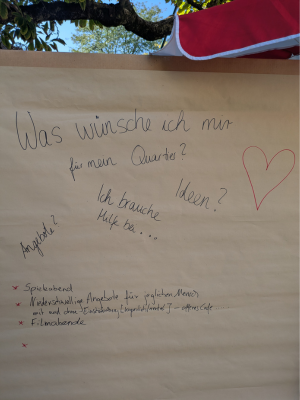 Was wünsche ich mir
für mein Quartier?
Ideen?
Ich brauche
Hilfe bei...
Angebote?
x Spieleabend
x Niederschwellige Angebote für jeglichen Mensch
mit und ohne Einschränkung [körperlich/mental] - offenes Café
x Filmabende
x